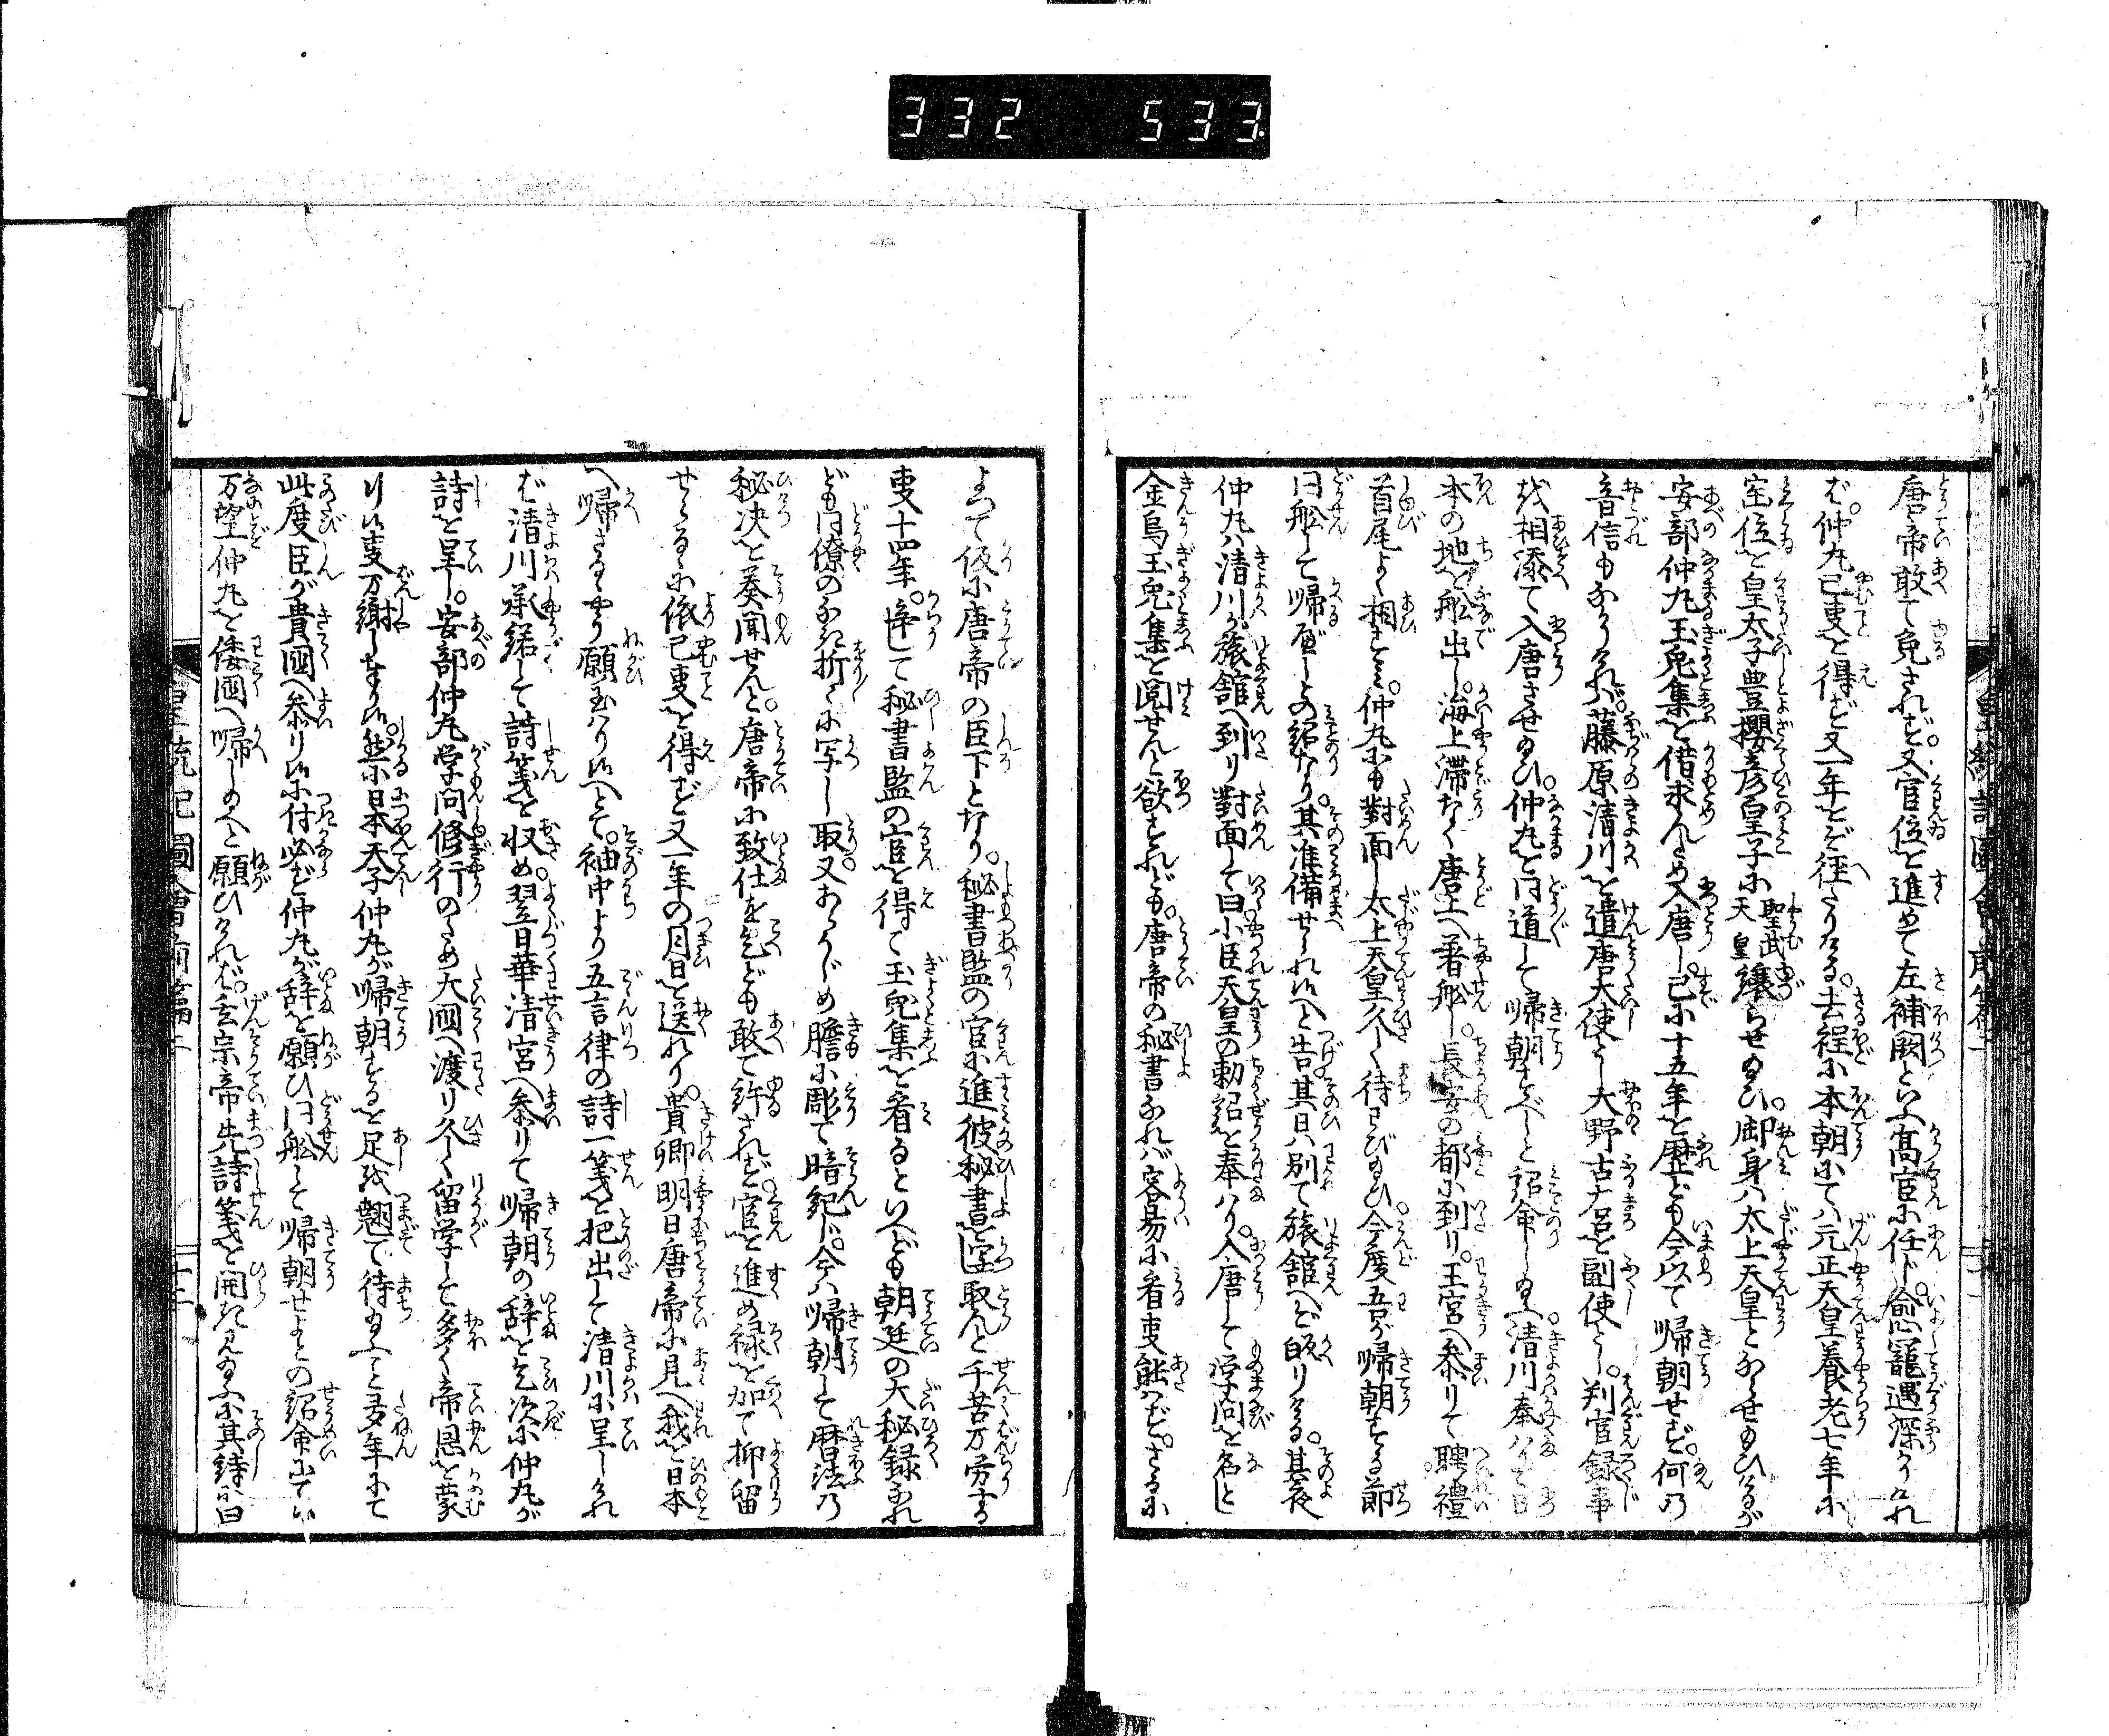 332 533.
唐帝敢て免されず。又官位を進めて左補闕といふ高官に任じ愈恩寵遇深かりけれ
ば。仲丸已事を得ず又一年をぞ経たりける。去程に本朝にては元正天皇養老七年に
宝位を皇太子豊櫻彦皇子に聖武天皇譲らせ給ひ。御身は太上天皇とならせ給ひけるが
安部仲丸玉兎集を借求んため入唐し。已に十五年を歴ども今以て帰朝せず。何の
音信もなかりければ。藤原清川を遣唐大使とし大野古广呂を副使とし。判官録事
を相添て入唐させ給ひ。仲丸と同道して帰朝すべしと詔命し給へば清川奉はりて日
本の地を舩出し。海上滞なく唐土へ著舩し。長安の都に到り。王宮へ参りて聘禮
首尾よく相すみ。仲丸にも對面し太上天皇久しく待わび給ひ。今度吾が帰朝する節
同舩して帰るべしとの詔なり。其准備せられ候へと告其日は別て旅舘へぞ皈りける。其夜
仲丸は清川が旅舘へ到り對面して曰小臣天皇の勅詔を奉はり。入唐して学問を名とし
金烏玉兎集を閲せんと欲すれども。唐帝の秘書なれば容易に看る事能はず。さるに
よつて仮に唐帝の臣下となり。秘書監の官に進彼秘書を写取んと千苦万労する
事十四年。辛して秘書監の官を得て玉兎集を看るといへども朝廷の大秘録なれ
ども同僚のなき折々に写し取又あらかじめ膽に彫て暗記ず。今は帰朝して暦法の
秘决を奏聞せんと。唐帝に致仕を乞ども敢て許されず。官を進め禄を加て抑留
せらるるに依已事を得ず又一年の月日を送れり。貴卿明日唐帝に見へ我を日本
へ帰さるるやう願玉はり候へとて。袖中より五言律の詩一箋を把出して清川に呈しけれ
ば清川承諾して詩箋を収め。翌日華清宮へ参りて帰朝の辞を乞次に仲丸が
詩を呈し。安部仲丸学问修行のため大國へ渡り久しく留学して多く帝恩を蒙
り候事万謝し奉り候。然に日本天子仲丸が帰朝するを足を翹て待給ふこと多年にて
此度臣が貴國へ参り候に付必ず仲丸が辞を願ひ同舩して帰朝せよとの詔命にて候
万望仲丸を倭國へ帰し給へと願ひければ。玄宗帝先詩箋を開き見給ふに其詩に曰